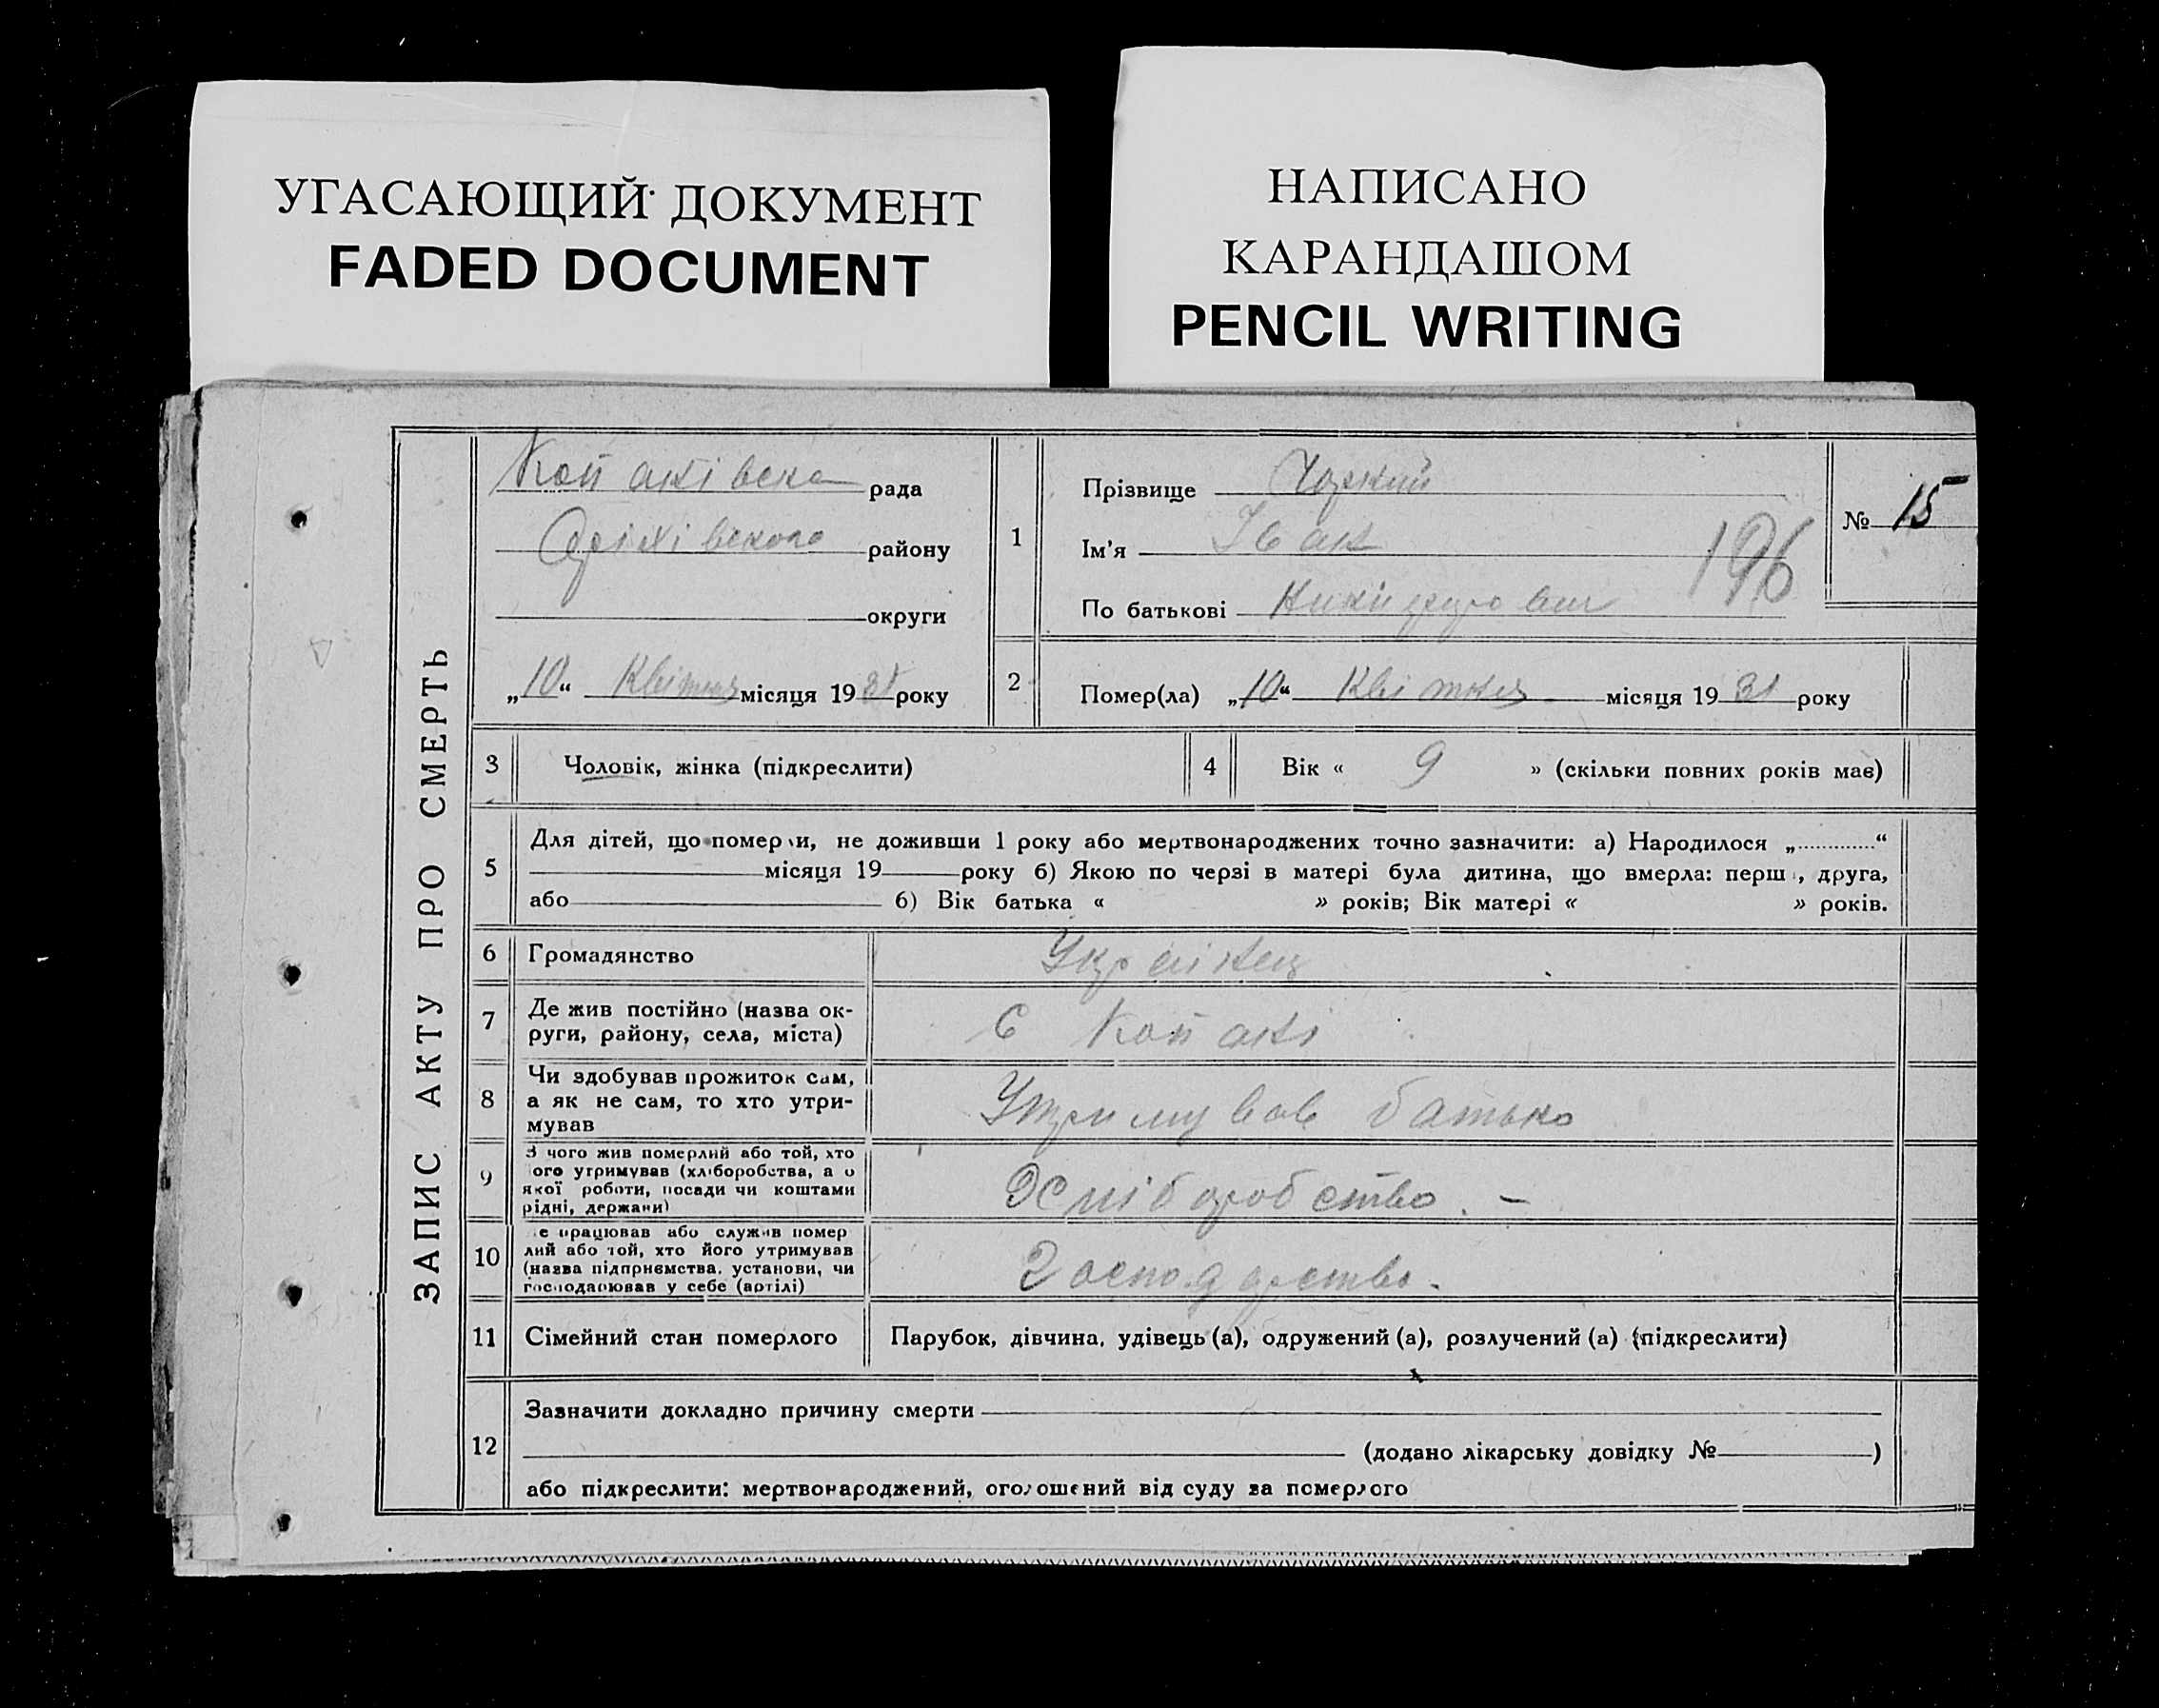 УГАСАЮЩИЙ ДОКУМЕНТ
FADED DOCUMENT
НАПИСАНО
КАРАНДАШОМ
PENCIL WRITING
ЗАПИС АКТУ ПРО СМЕРТЬ
Копанівська рада
Оріхівського району
округи
„10“ Квітня місяця 1931 року
1
Прізвище
Ім’я Іван
196
По батькові Никифорович
№ 15
2 Помер(ла) „10“ Квітня місяця 1931 року
3 Чоловік, жінка (підкреслити)
4 Вік « 9 » (скільки повних років має)
5 Для дітей, що померли, не доживши 1 року або мертвонароджених точно зазначити: а) Народилося „ “
місяця 19 року б) Якою по черзі в матері була дитина, що вмерла: перш , друга,
або б) Вік батька « » років; Вік матері « » років.
6 Громадянство Українец
7 Де жив постійно (назва ок-
руги, району, села, міста)
С Копані
8 Чи здобував прожиток сам,
а як не сам, то хто утри-
мував
Утримував батько
9 З чого жив померлий або той, хто
ого утримував (хліборобства, а о
якої роботи, посади чи коштами
рідні, держави)
Хліборобство. –
10 е працював або служив помер
лий або той, хто його утримував
(назва підприємства, установи, чи
господарював у себе (артілі)
Господарство.
11 Сімейний стан померлого Парубок, дівчина, удівець (а), одружений (а), розлучений (а) (підкреслити)
12 Зазначити докладно причину смерти
(додано лікарську довідку № )
або підкреслити: мертвонароджений, оголошений від суду за померлого